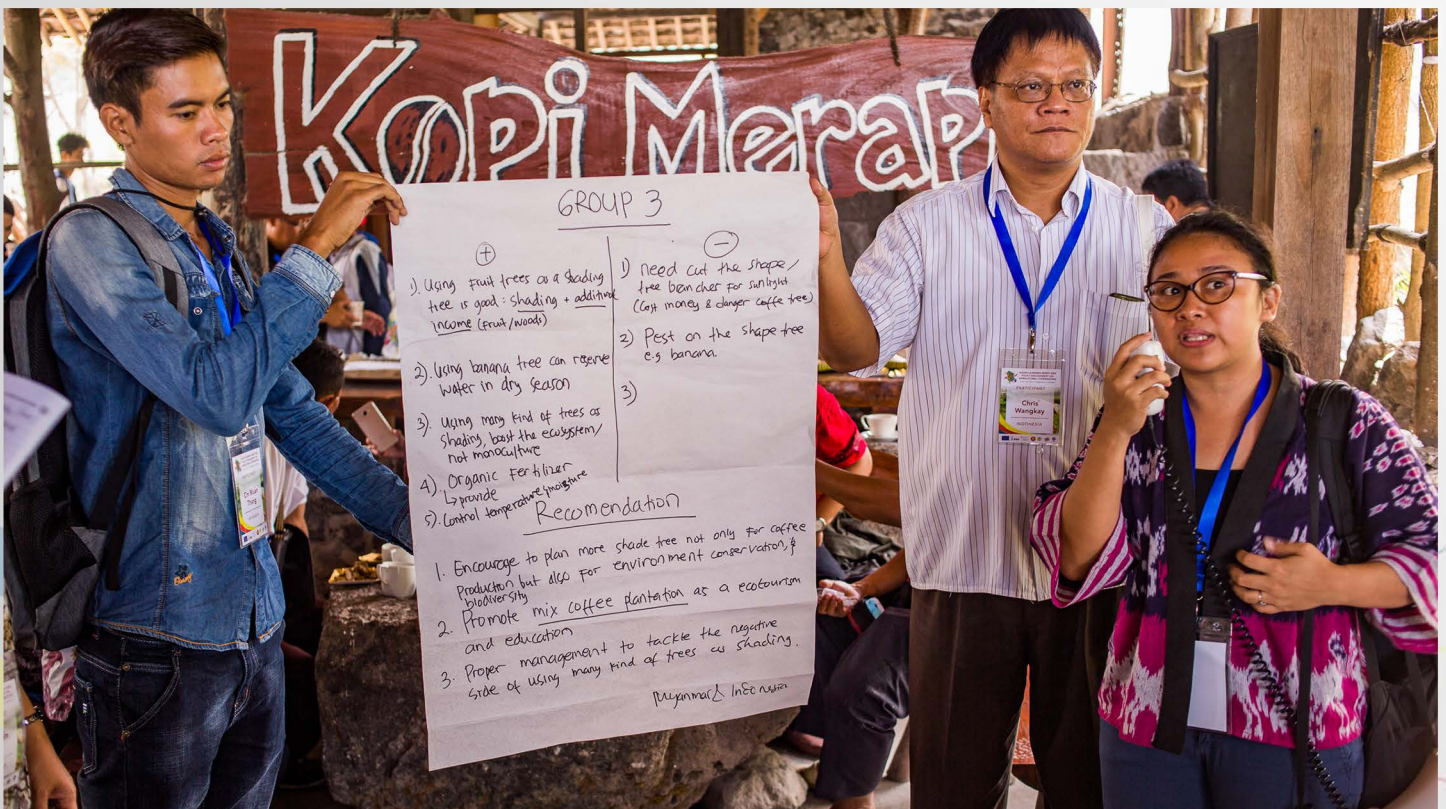 Kopi Merap
GROUP 3
+
1). Using Fruit trees as a shading
tree is good: shading + additional
income (Fruit/woods)
2). Using banana tree can reserve
water in dry season
3). Using many kind of trees as
shading, boost the ecosystem/
not monoculture
4) Organic Fertilizer
↳ provide
5). Control temperature/moisture
-
1) need cut the shape/
tree beancher For sunlight
(Cost money & danger coffe tree)
2) Pest on the shape tree
e.g banana
3)
Recomendation
1. Encourage to plan more shade tree not only For coffee
Production but also For environment conservation, &
biodiversity
2. Promote mix coffee plantation as a ecotourism
and education
3. Proper management to tackle the negative
side of using many kind of trees as shading.
Myanmar & Indonesia
PARTICIPANT
Chris
Wangkay
INDONESIA